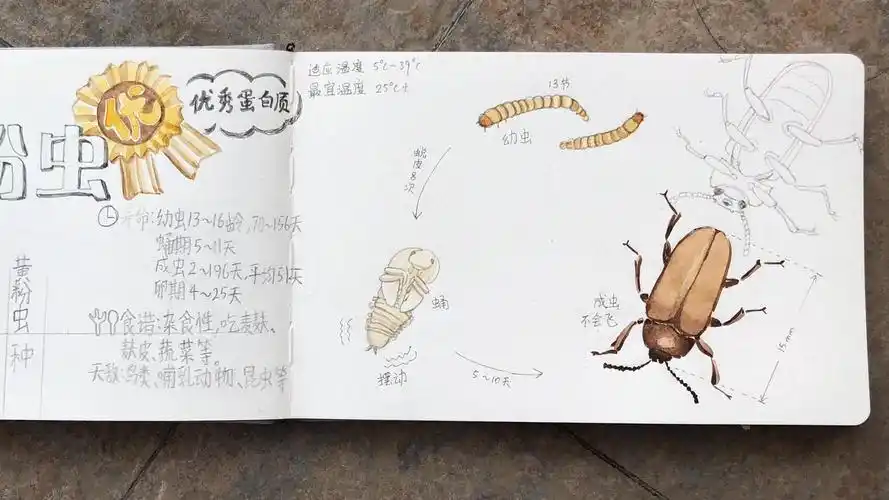 优
优秀蛋白质
粉虫
寿命:幼虫13~16龄,70~156天
蛹期5~11天
成虫2~196天,平均51天
卵期4~25天
黄粉虫
种
食谱:杂食性,吃麦麸、
麸皮、蔬菜等。
天敌:鸟类、哺乳动物、昆虫等
适应温度 5℃-39℃
最宜温度 25℃±
13节
幼虫
蜕皮8次
蛹
摆动
5~10天
成虫
不会飞
15mm